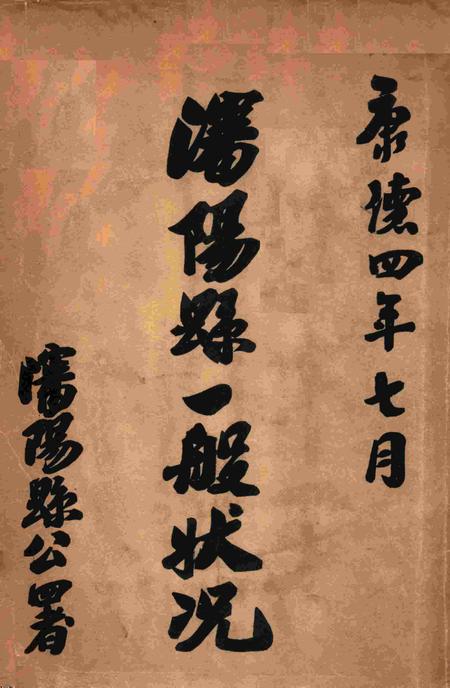 康德四年七月
瀋陽縣一般状况
瀋陽縣公署